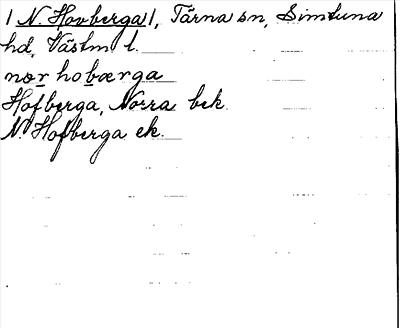 | N. Hovberga |, Tärna sn, Simtuna
hd, Västm l.
nor hobærga
Hofberga, Norra bek.
N. Hofberga ek.